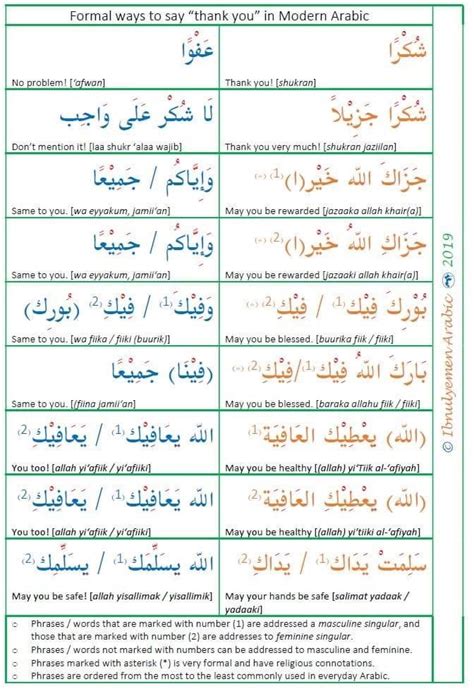 Formal ways to say “thank you” in Modern Arabic
شُكْرًا
Thank you! [shukran]
عَفْوًا
No problem! [‘afwan]
شُكْرًا جَزِيْلاً
Thank you very much! [shukran jaziilan]
لَا شُكْر عَلَى وَاجِب
Don’t mention it! [laa shukr ‘alaa wajib]
جَزَاكَ اللّه خَيْر(ا) (1) (*)
May you be rewarded [jazaaka allah khair(a)]
وَإِيَّاكُم / جَمِيْعًا
Same to you. [wa eyyakum, jamii’an]
جَزَاكِ اللّهُ خَيْر(ا) (2) (*)
May you be rewarded [jazaaki allah khair(a)]
وَإِيَّاكُم / جَمِيْعًا
Same to you. [wa eyyakum, jamii’an]
بُوْرِكَ فِيْكَ (1) / فِيْكِ (2) (*)
May you be blessed. [buurika fiik / fiiki]
وَفِيْكَ (1) / فِيْكِ (2) (بُورِك)
Same to you. [wa fiika / fiiki (buurik)]
بَارَكَ اللّهُ فِيْك (1) / فِيْكِ (2) (*)
May you be blessed. [baraka allahu fiik / fiiki]
(فِيْنَا) جَمِيْعًا
Same to you. [(fiina jamii’an]
(اللّه) يِعْطِيْكَ العَافِيَة (1)
May you be healthy [(allah) yi’Tiik al-‘afiyah]
اللّه يعَافِيْكَ (1) / يِعَافِيْكِ (2)
You too! [allah yi’afiik / yi’afiiki]
(اللّه) يِعْطِيْكِ العَافِيَة (2)
May you be healthy [(allah) yi’tiiki al-‘afiyah]
اللّه يعَافِيْكَ (1) / يِعَافِيْكِ (2)
You too! [allah yi’afiik / yi’afiiki]
سَلِمَتْ يَدَاكَ (1) / يَدَاكِ (2)
May your hands be safe [salimat yadaak / yadaaki]
اللّه يسَلِّمَك (1) / يسَلِّمِك (2)
May you be safe! [allah yisallimak / yisallimik]
o Phrases / words that are marked with number (1) are addressed a masculine singular, and
those that are marked with number (2) are addresses to feminine singular.
o Phrases / words not marked with numbers can be addressed to masculine and feminine.
o Phrases marked with asterisk (*) is very formal and have religious connotations.
o Phrases are ordered from the most to the least commonly used in everyday Arabic.
© Ibnulyemen Arabic 2019